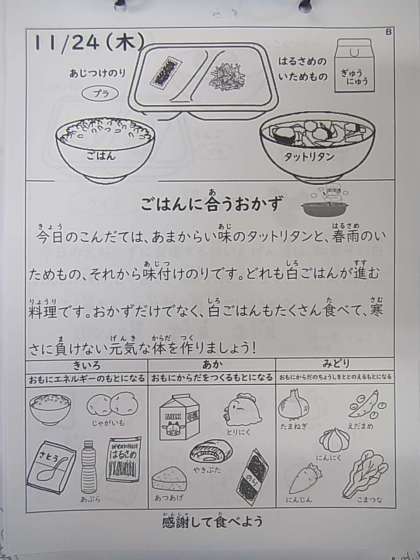 B
11/24(木)
あじつけのり
プラ
はるさめの
いためもの
ぎゅう
にゅう
ごはん
タットリタン
ごはんに合うおかず
今日のこんだては、あまからい味のタットリタンと、春雨のい
ためもの、それから味付けのりです。どれも白ごはんが進む
料理です。おかずだけでなく、白ごはんもたくさん食べて、寒
さに負けない元気な体を作りましょう!
きいろ
おもにエネルギーのもとになる
あか
おもにからだをつくるもとになる
みどり
おもにからだのちょうしをととのえるもとになる
じゃがいも
さとう
あぶら
はるさめ
とりにく
やきぶた
あつあげ
のり
たまねぎ
えだまめ
にんにく
にんじん
こまつな
感謝して食べよう